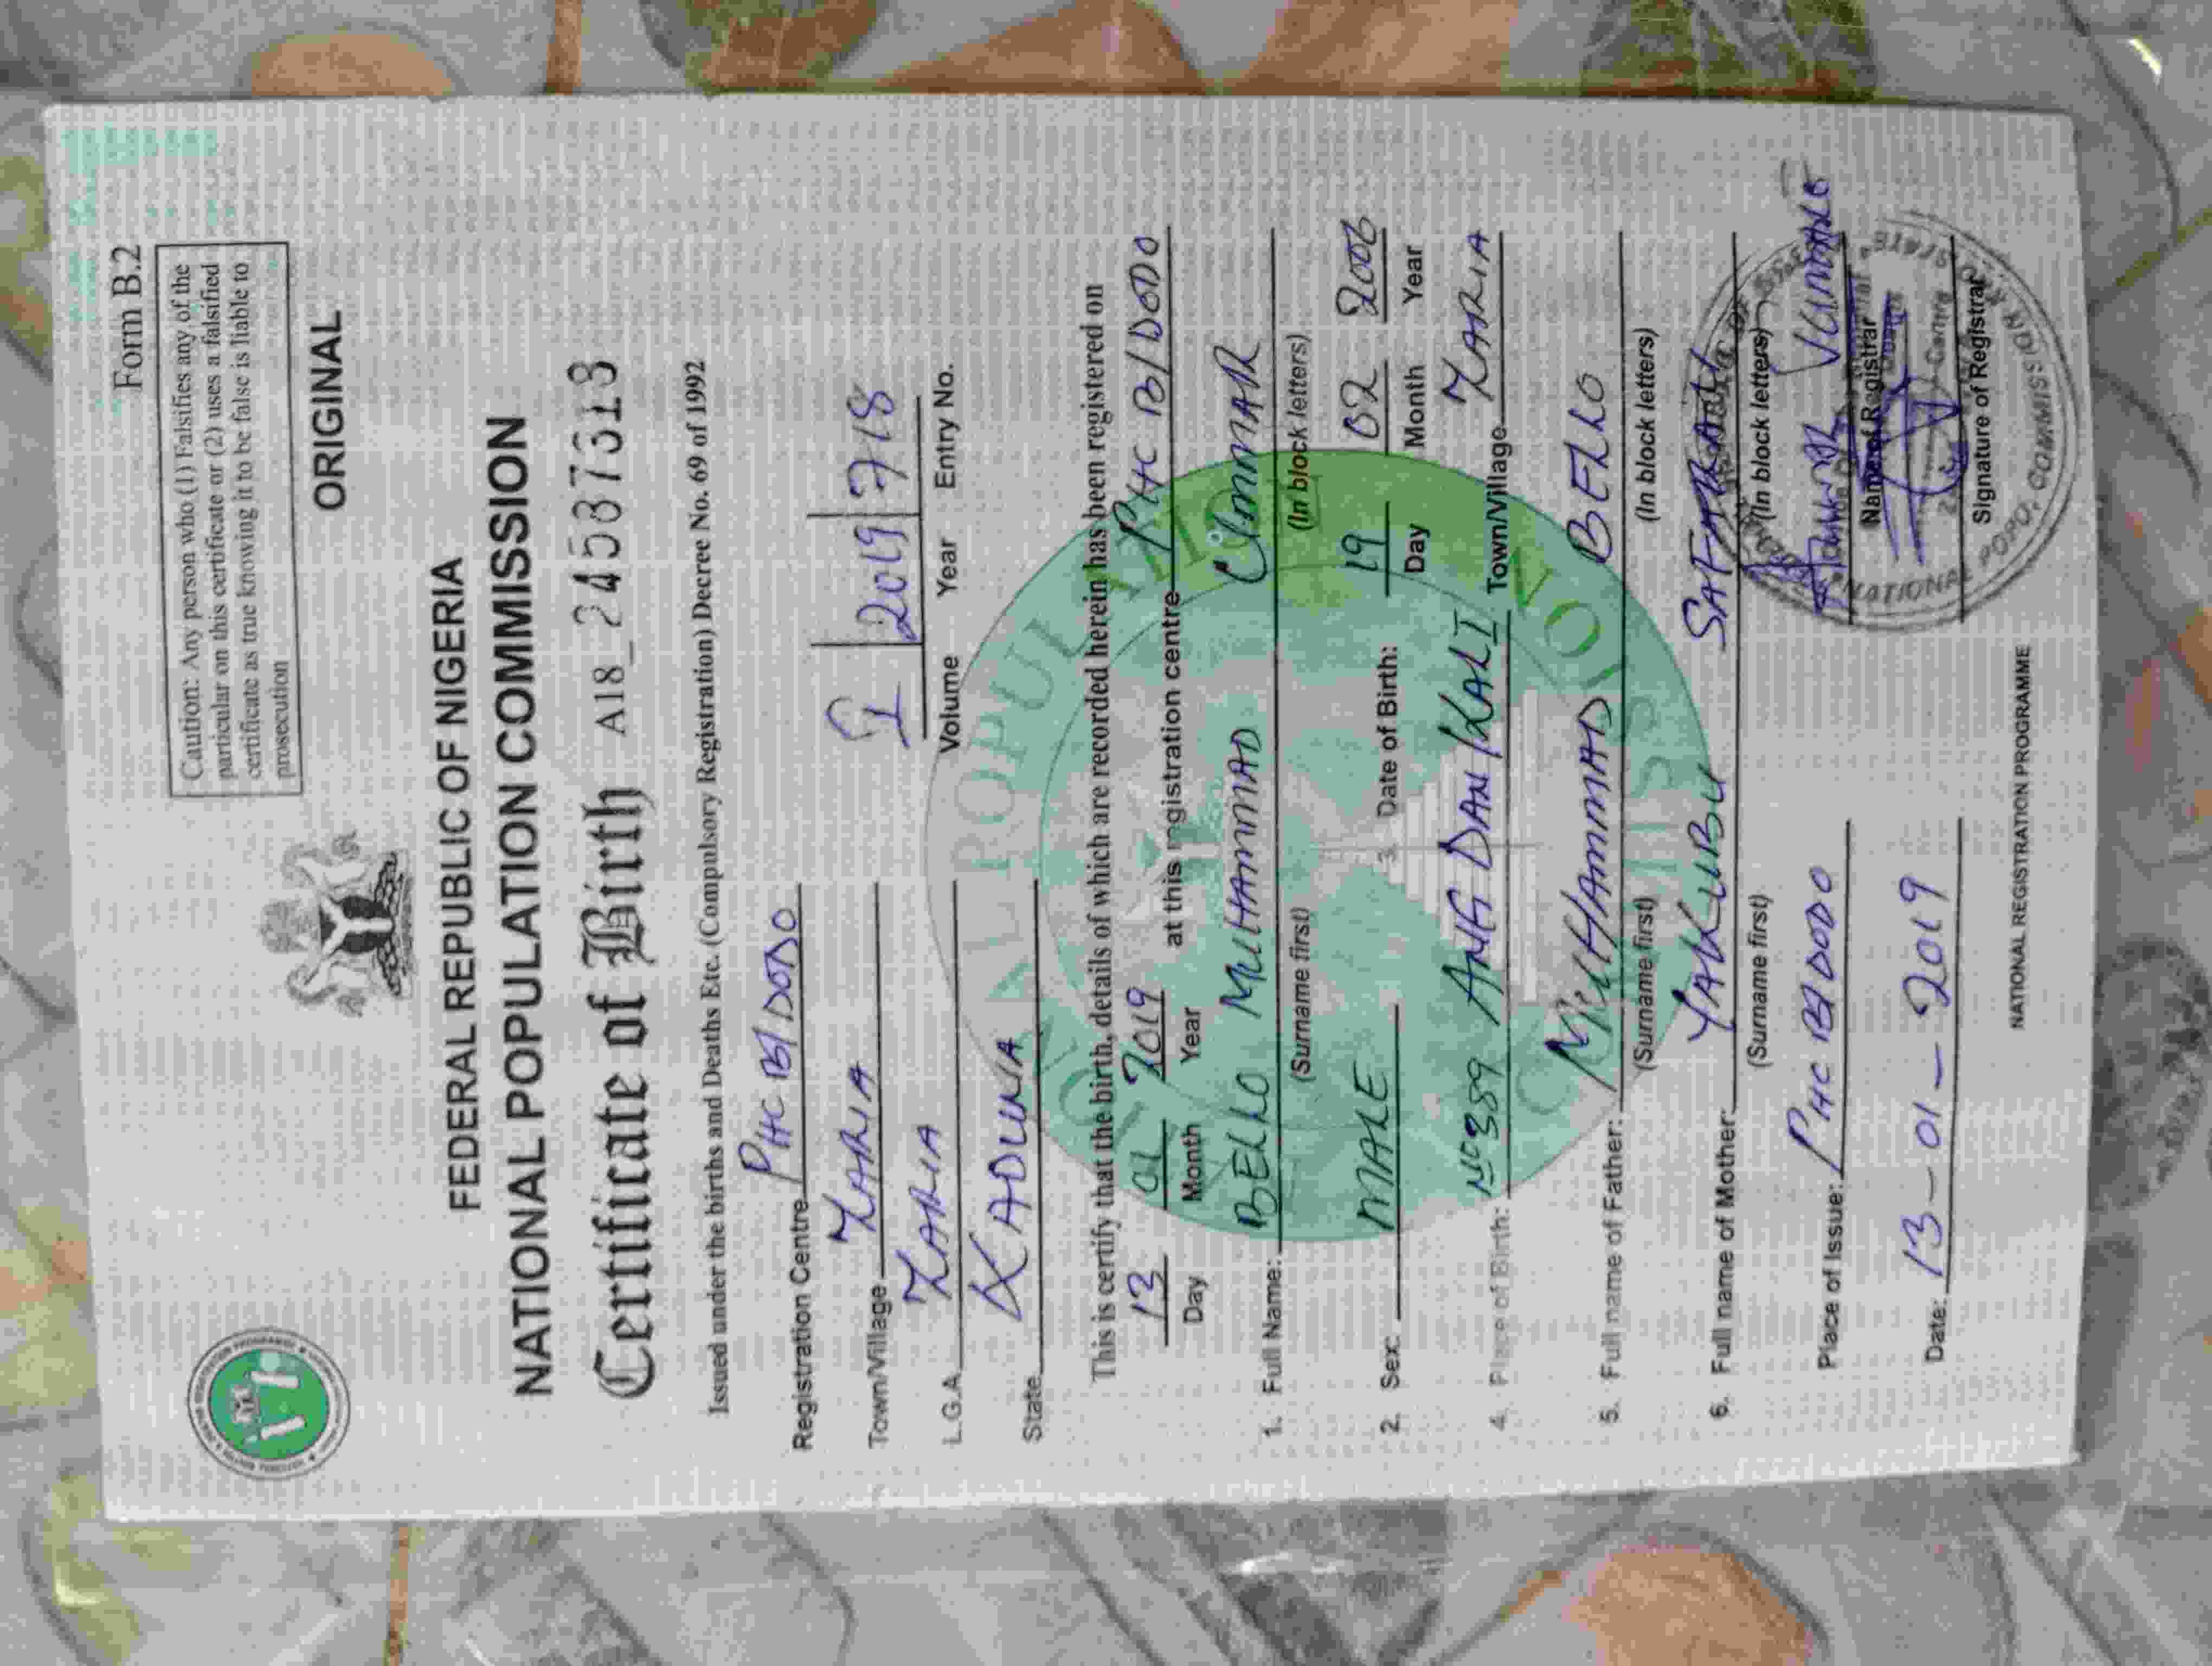 Form B.2
Caution: Any person who (1) Falsifies any of the
particular on this certificate or (2) uses a falsified
certificate as true knowing it to be false is liable to
prosecution
ORIGINAL
FEDERAL REPUBLIC OF NIGERIA
NATIONAL POPULATION COMMISSION
Certificate of Birth A18_24587318
Issued under the births and Deaths Etc. (Compulsory Registration) Decree No. 69 of 1992
Registration Centre PHC B/DODO
Town/Village ZARIA
I 2019 718
L.G.A. ZARIA
Volume Year Entry No.
State KADUNA
This is certify that the birth, details of which are recorded herein has been registered on
13 01 2019 at this registration centre PHC B/DODO
Day Month Year
1. Full Name: BELLO MUHAMMAD UMMAR
(Surname first) (In block letters)
2. Sex: MALE 3. Date of Birth: 19 02 2006
Day Month Year
4. Place of Birth: No 389 ANG DAN KALI Town/Village ZARIA
5. Full name of Father: MUHAMMAD BELLO
(Surname first) (In block letters)
6. Full name of Mother: YAKUBU SAFARATU
(Surname first) (In block letters)
Place of Issue: PHC B/DODO
Name of Registrar
Date: 13-01-2019
Signature of Registrar
NATIONAL POPU. COMMISSION
NATIONAL REGISTRATION PROGRAMME